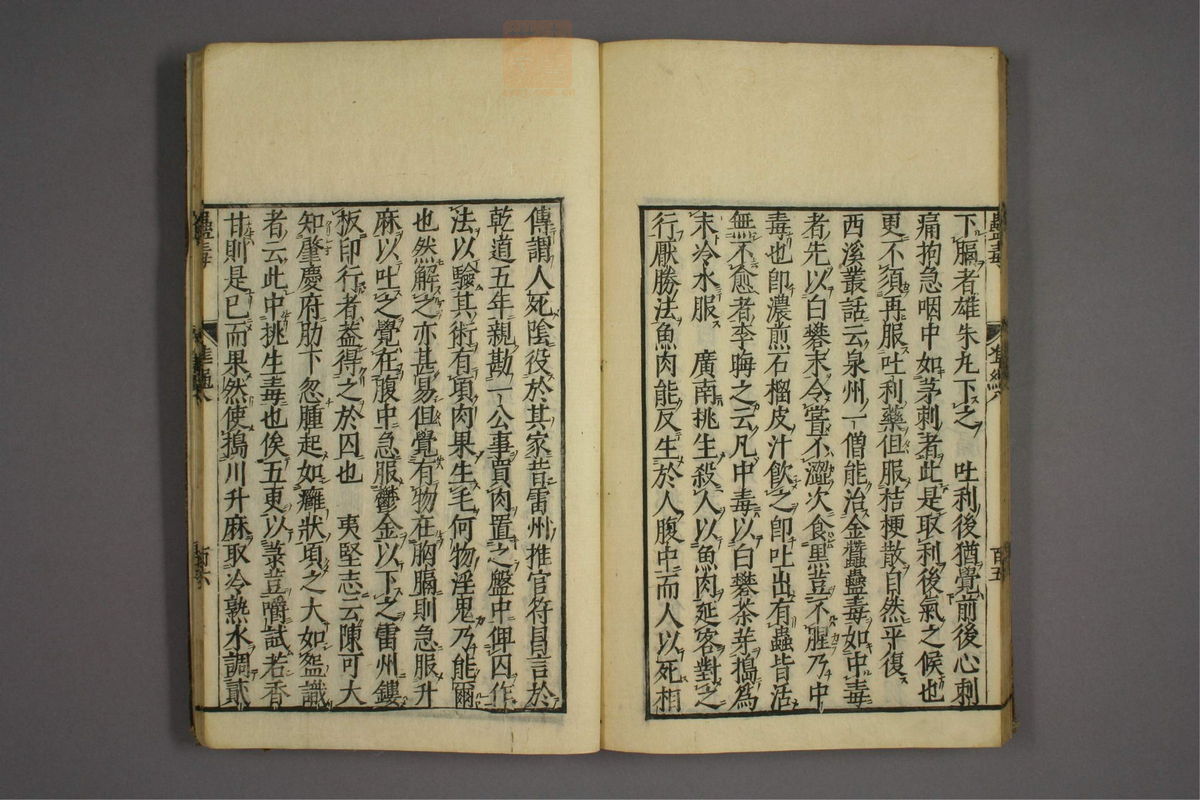 下膈者雄朱丸下之　吐利後猶覺前後心刺
痛拘急咽中如茅刺者此是取利後氣之候也
更不須再服吐利藥但服桔梗散自然平復
西溪叢話云泉州一僧能治金蠶蠱毒如中毒
者先以白礬末令嘗不澀次食黑豆不腥乃中
毒也卽濃煎石榴皮汁飲之卽吐出有蟲皆活
無不愈者李晦之云凡中毒以白礬茶芽搗為
末冷水服　廣南挑生殺人以魚肉延客對之
行厭勝法魚肉能反生於人腹中而人以死相
傳謂人死陰役於其家昔雷州推官符昌言於
乾道五年親勘一公事買肉置之盤中俾囚作
法以驗其術有項肉果生毛何物淫鬼乃能爾
也然解之亦甚易但覺有物在胸膈則急服升
麻以吐之覺在腹中急服鬱金以下之雷州鏤
板印行者蓋得之於囚也　夷堅志云陳可大
知肇慶府肋下忽腫起如癰狀頃之大如盌識
者云此中挑生毒也俟五更以菉荳嚼試若香
甘則是已而果然使搗川升麻取冷熟水調貳
蠱毒
百五
蠱毒
百六